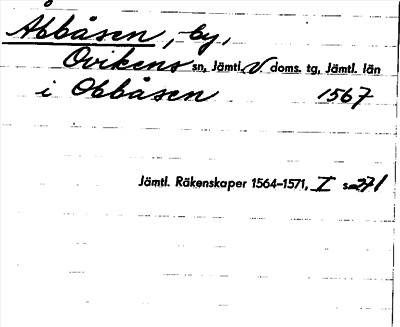 Åbbåsen, by,
Ovikens sn, Jämtl. V. doms. tg, Jämtl. län
i Obbåsen 1567
Jämtl. Räkenskaper 1564-1571, I s. 271